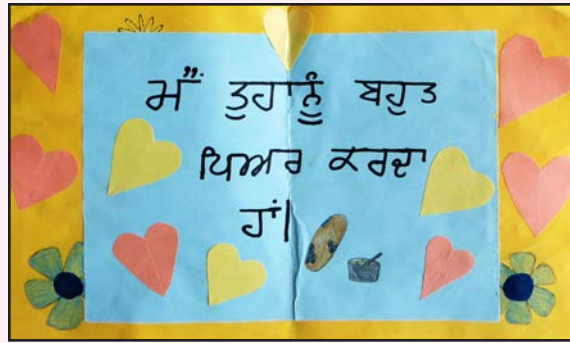 ਮੈਂ ਤੁਹਾਨੂੰ ਬਹੁਤ
ਪਿਆਰ ਕਰਦਾ
ਹਾਂ।